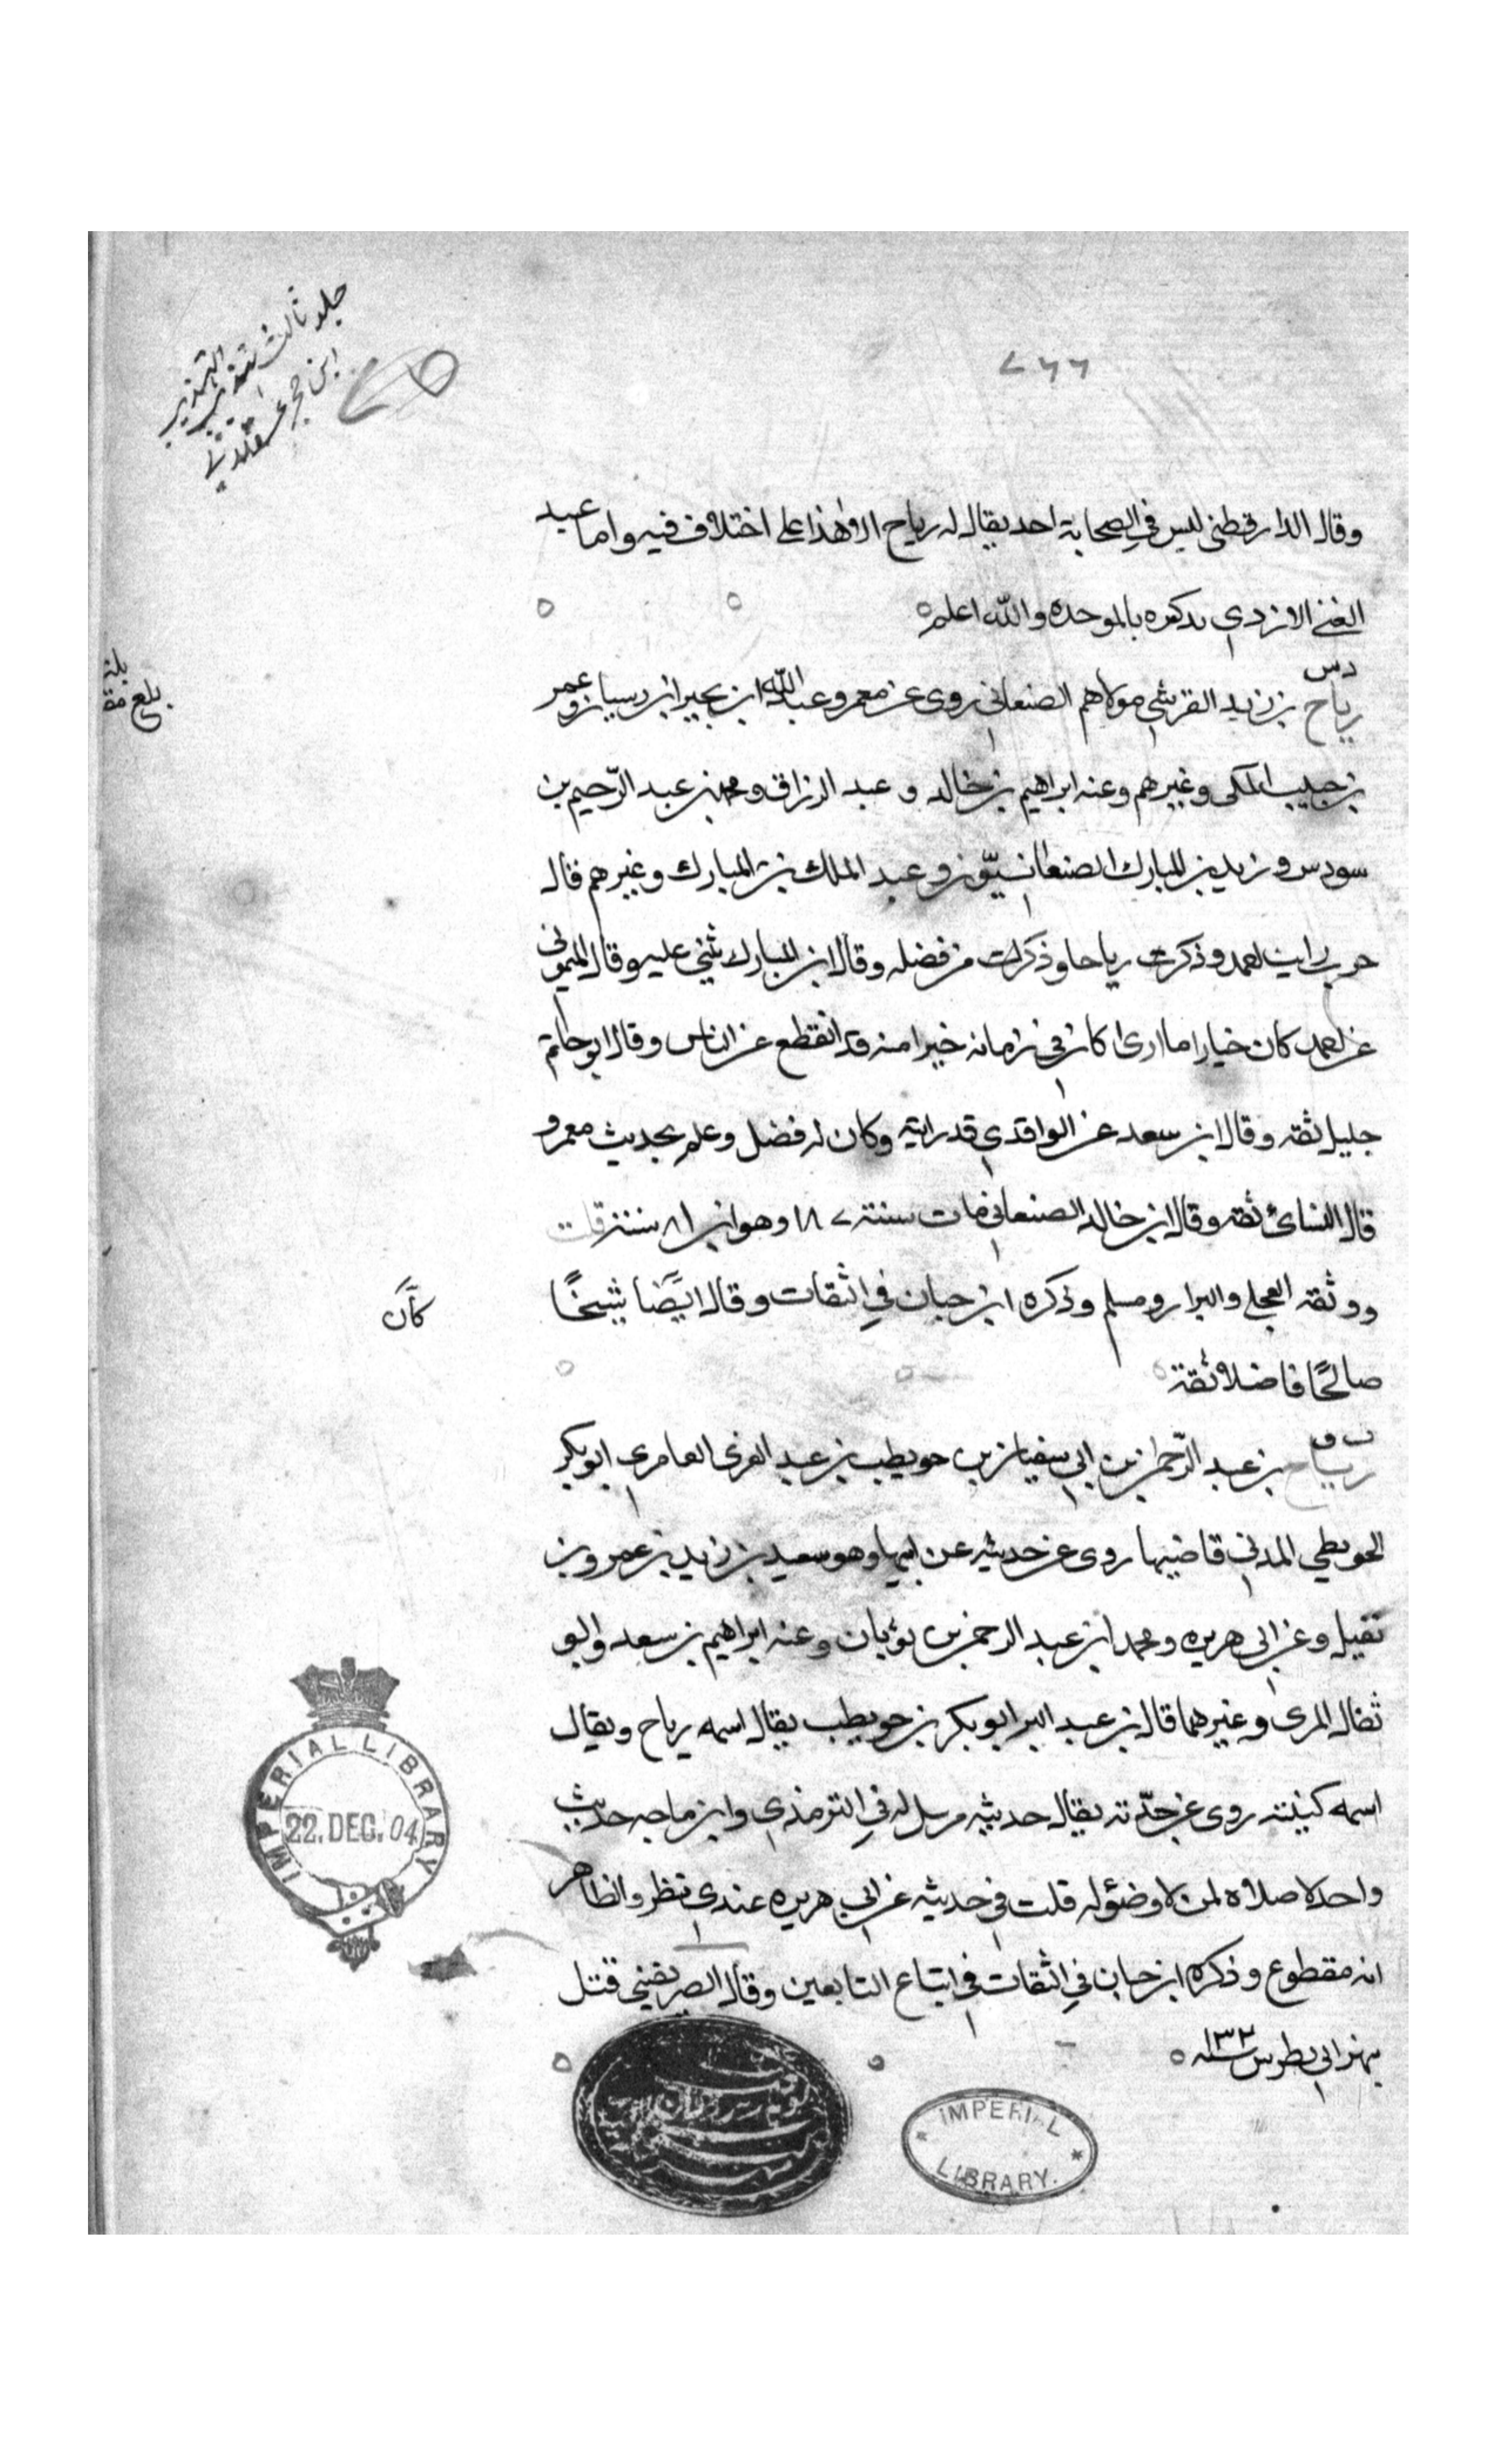 جلد ثالث تهذيب التهذيب
ابن حجر عسقلاني
٧٦٦
وقال الدارقطني ليس في الصحابة احد يقال له رياح الا هذا على اختلاف فيه واما عبد
الغني الازدي يدكره بالموحده والله اعلم
بلغ
د س
رياح بن زيد القرشي مولاهم الصنعاني روى عن معمر وعبد الله ابن بحير ابن ريسان وعمر
بن حبيب المكي وغيرهم وعنه ابراهيم بن خالد و عبد الرزاق ومحمد بن عبد الرحيم بن
سودس وزيد بن المبارك الصنعانيّون وعبد الملك بن المبارك وغيرهم قال
حرب رايت احمد وذكرت رياحا وذكرت من فضله وقال ابن المبارك ثني عليه وقال الميموني
عن احمد كان خيارا ما ارى كان في زمانه خيرا منه قد انقطع عن الناس وقال ابو حاتم
جليل ثقه وقال ابن سعد عن الواقدي قد رايته وكان له فضل وعلم بحديث معمر و
قال النسائ ثقه وقال ابن خالد الصنعاني مات سنة ١٨٧ وهو ابن ٨١ سنة قلت
ووثقه العجلي والبزار ومسلم وذكره ابن حبان في الثقات وقال ايضًا شيخًا
كان
صالحًا فاضلا ثقة
ت ق
رياح بن عبد الرّحمن بن ابي سفيان بن حويطب بن عبد العزى العامري ابو بكر
الحويطبي المدني قاضيها روى عن حديثه عن ابيها وهو سعيد بن زيد بن عمرو بن
نفيل وعن ابي هريره ومحمد ابن عبد الرحمن بن ثوبان وعنه ابراهيم بن سعد وابو
ثفال المرى وغيرهما قال بن عبد البر ابو بكر بن حويطب يقال اسمه رياح ويقال
اسمه كنيته روى عن جدّته يقال حديثه مرسل له في الترمذي وابن ماجه حديث
واحد لا صلاة لمن لا وضؤ له قلت في حديثه عن ابي هريره عندي نظر والظاهر
انه مقطوع وذكره ابن حبان في الثقات في اتباع التابعين وقال الصريفيني قتل
بنهر ابي بطرس سنه ١٣٢
IMPERIAL LIBRARY
22. DEC. 04
IMPERIAL
LIBRARY.